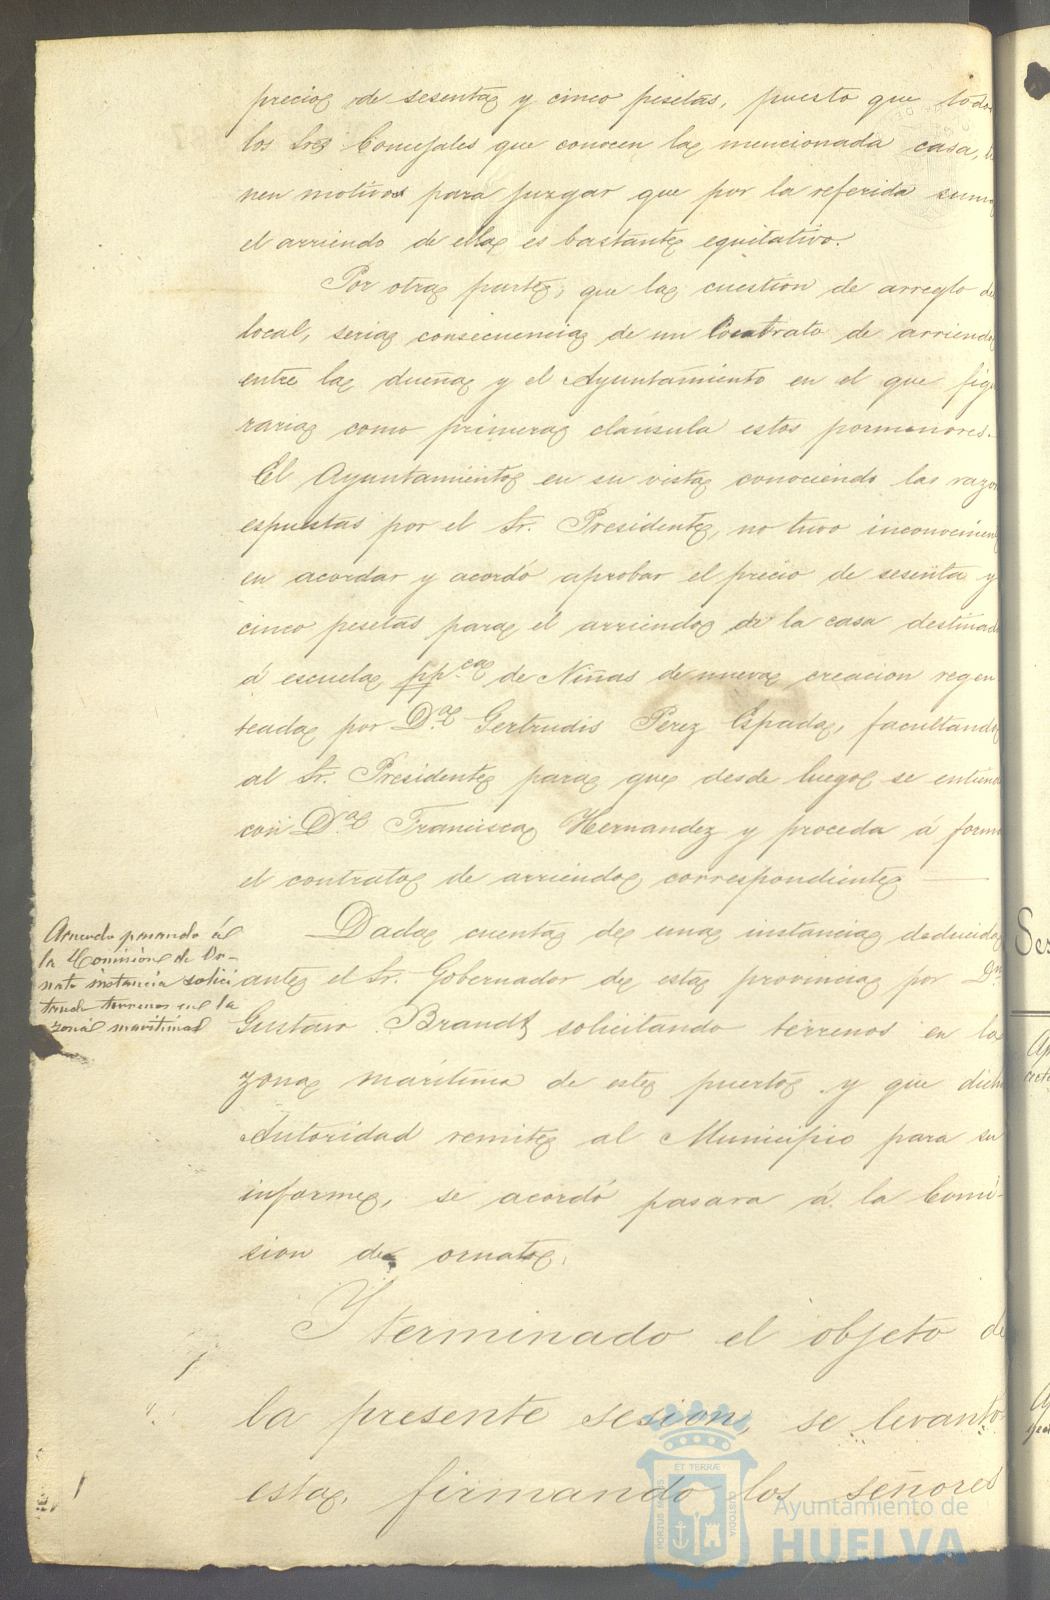 precio de sesenta y cinco pesetas, puesto que todos
los Sres Concejales que conocen la mencionada casa, tie
nen motivos para juzgar que por la referida suma
el arriendo de ella es bastante equitativo.
Por otra parte, que la cuestión de arreglo de
local, seria consecuencia de un Contrato de arriendo
entre la dueña y el Ayuntamiento en el que figu
raria como primera cláusula estos pormenores.
El Ayuntamiento en su vista conociendo las razon
espuestas por el Sr. Presidente, no tuvo inconvenien
en acordar y acordó aprobar el precio de sesenta y
cinco pesetas para el arriendo de la casa destinada
á escuela pp.ca de Niñas de nueva creacion regen
teada por D.a Gertrudis Perez Espada, facultando
al Sr. Presidente para que desde luego se entienda
con D.a Francisca Hernandez y proceda á forma
el contrato de arriendo correspondiente
Acuerdo pasando á
la Comisión de Or-
nato instancia solici
tando terrenos en la
zona marítima
Dada cuenta de una instancia deducida
ante el Sr. Gobernador de esta provincia por Dn
Gustavo Brandt solicitando terrenos en la
zona marítima de este puerto y que dicha
Autoridad remite al Municipio para su
informe, se acordó pasara á la Comi-
sion de ornato.
Y terminado el objeto de
la presente sesion, se levantó
esta, firmando los señores
PORTUS MARIS ET TERRÆ CUSTODIA
Ayuntamiento de
HUELVA